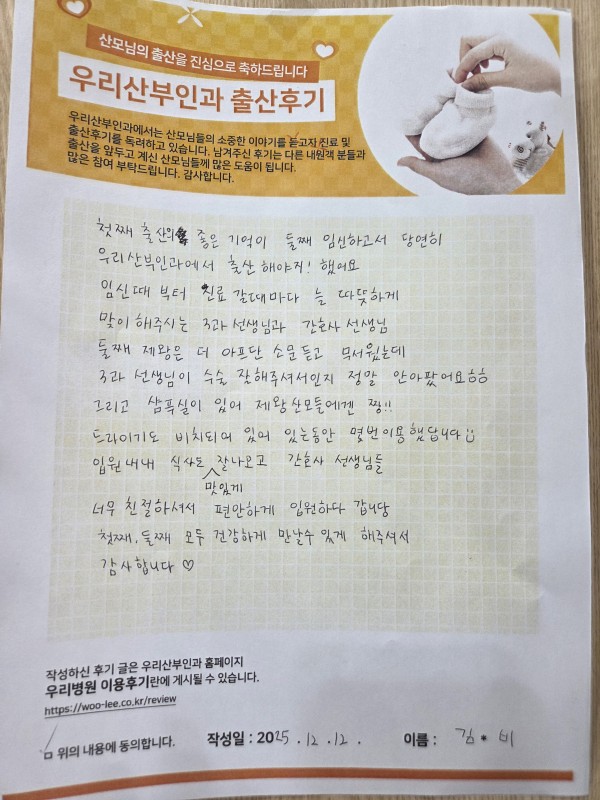 산모님의 출산을 진심으로 축하드립니다
우리산부인과 출산후기
우리산부인과에서는 산모님들의 소중한 이야기를 듣고자 진료 및
출산후기를 독려하고 있습니다. 남겨주신 후기는 다른 내원객 분들과
출산을 앞두고 계신 산모님들께 많은 도움이 됩니다.
많은 참여 부탁드립니다. 감사합니다.
첫째 출산의 좋은 기억이 둘째 임신하고서 당연히
우리산부인과에서 출산 해야지! 했어요
임신때 부터 진료 갈때마다 늘 따뜻하게
맞이 해주시는 3과 선생님과 간호사 선생님
둘째 제왕은 더 아프단 소문듣고 무서웠는데
3과 선생님이 수술 잘해주셔서인지 정말 안아팠어요ㅎㅎ
그리고 샴푸실이 있어 제왕산모들에겐 짱!!
드라이기도 비치되어 있어 있는동안 몇번이용했답니다
입원내내 식사도 맛있게 잘나오고 간호사 선생님들
너무 친절하셔서 편안하게 입원하다 갑니당
첫째, 둘째 모두 건강하게 만날수 있게 해주셔서
감사합니다 ♡
작성하신 후기 글은 우리산부인과 홈페이지
우리병원 이용후기란에 게시될 수 있습니다.
https://woo-lee.co.kr/review
위의 내용에 동의합니다. 작성일 : 2025.12.12. 이름 : 김*비